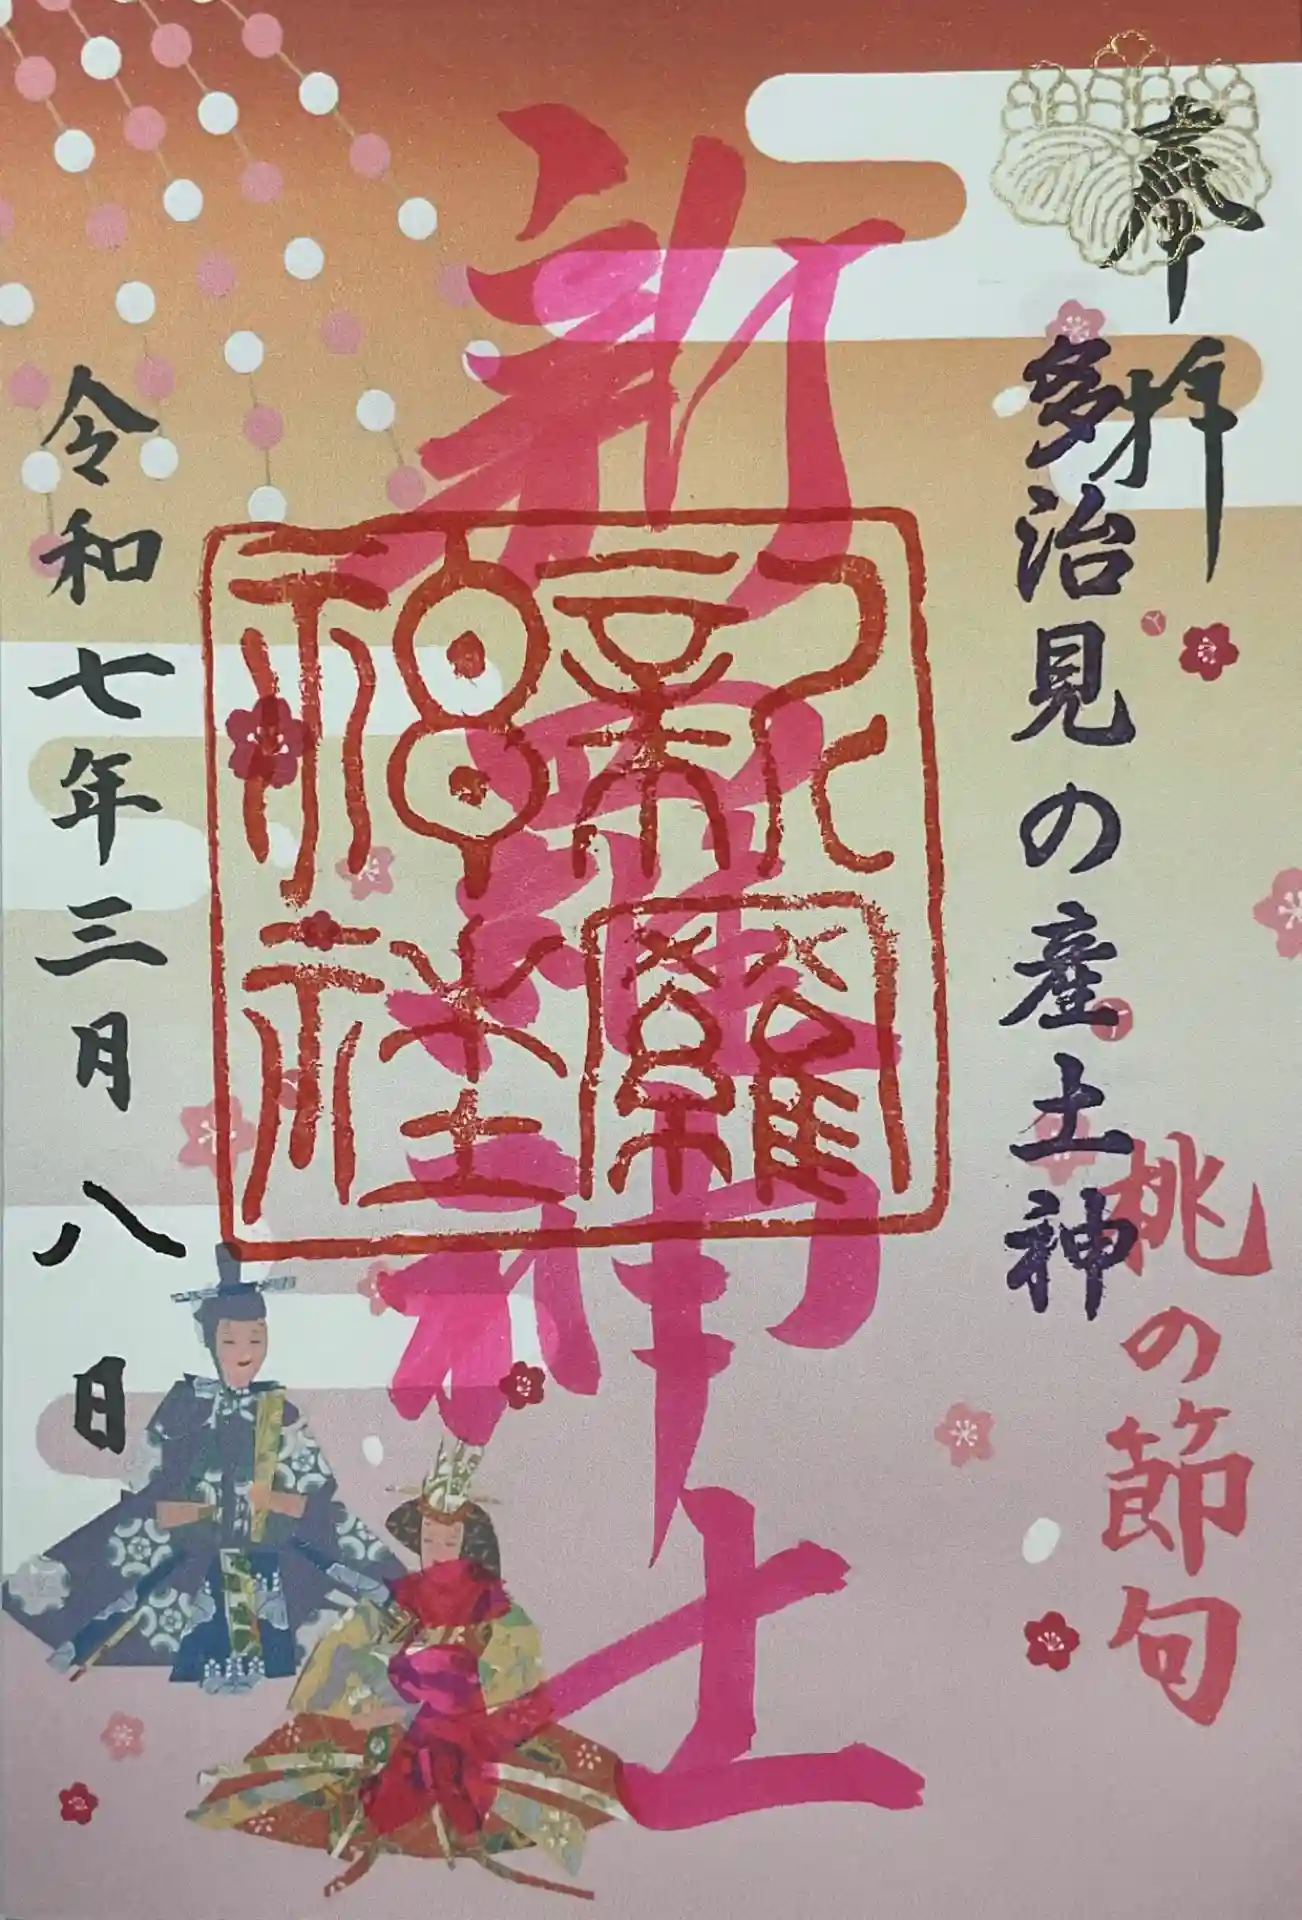 奉拝
多治見の産土神
桃の節句
新羅神社
新羅神社
令和七年三月八日